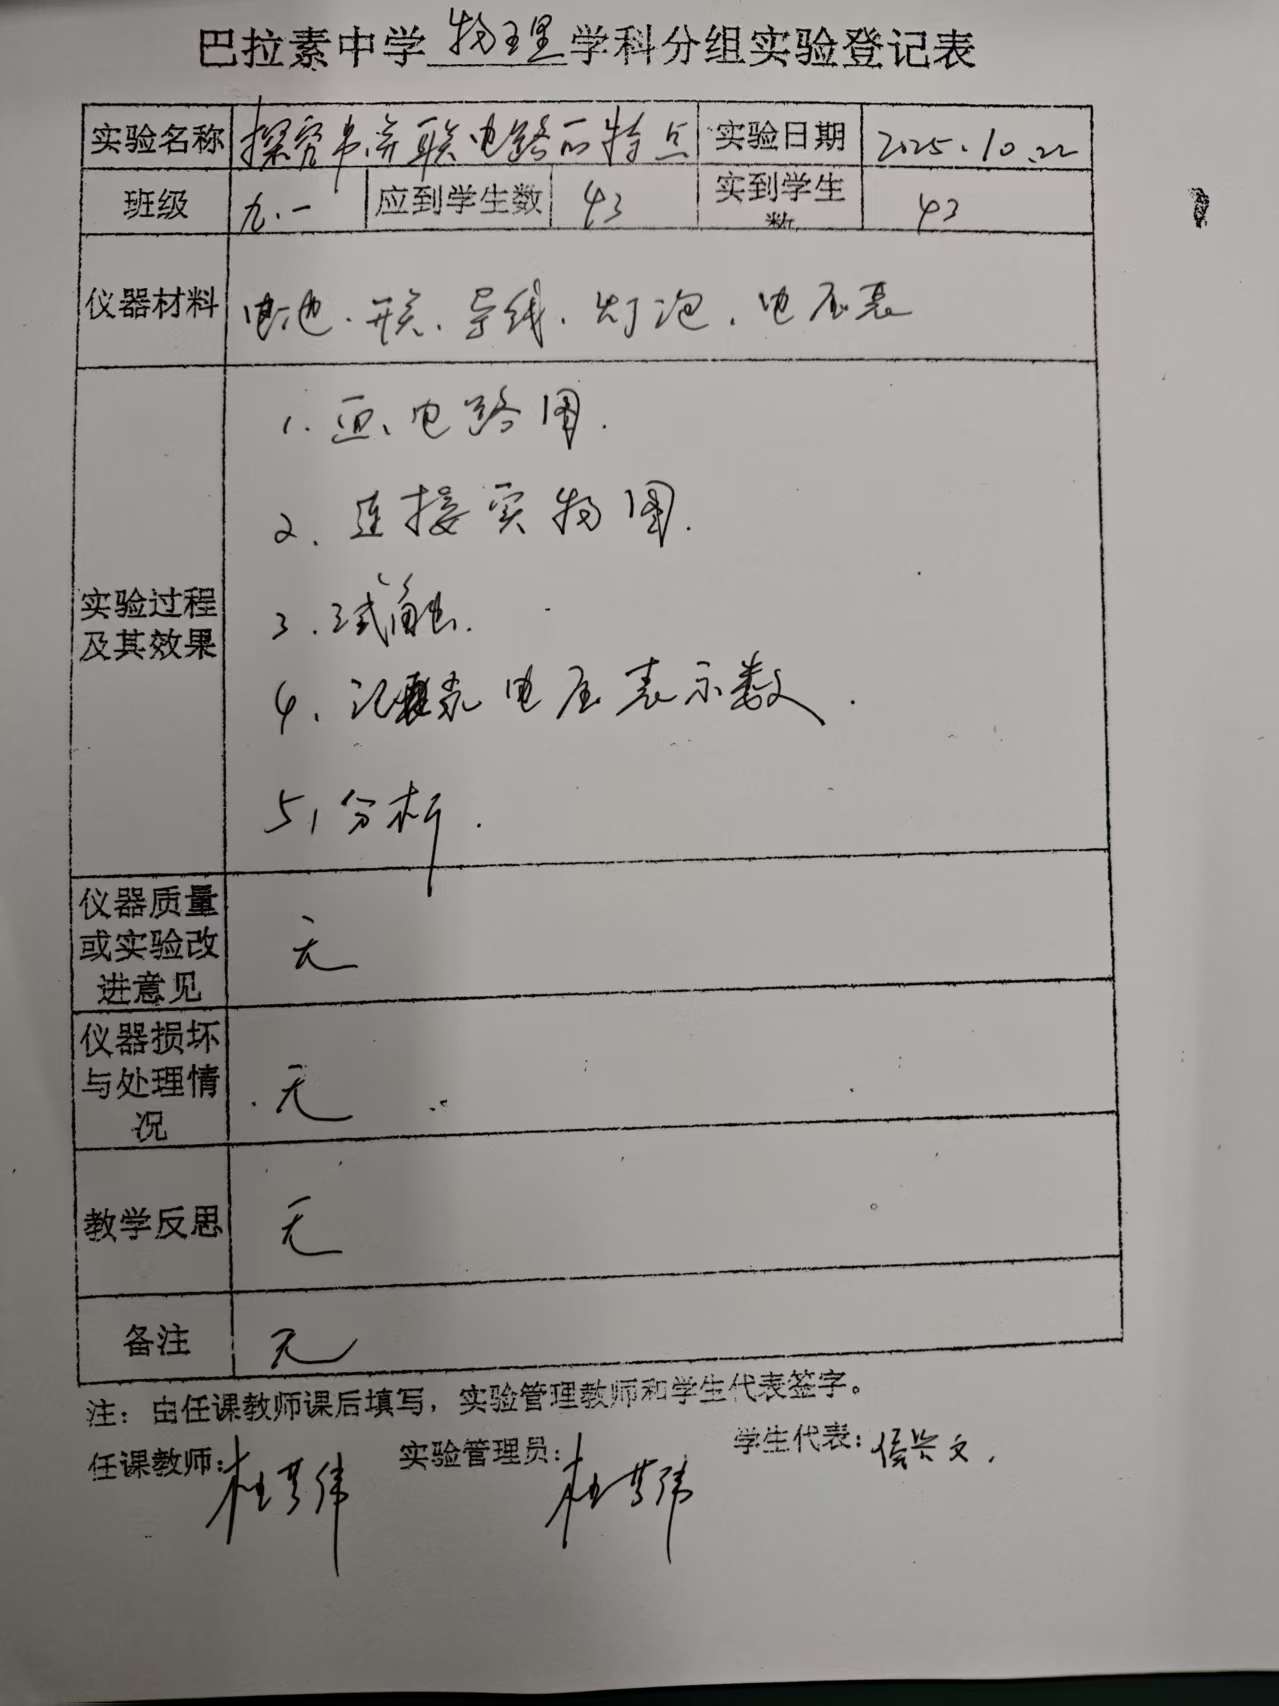 巴拉素中学 物理 学科分组实验登记表
实验名称 探究串、并联电路的特点 实验日期 2025.10.22
班级 九.一 应到学生数 43 实到学生数 43
仪器材料 电池.开关.导线.灯泡.电压表
1.画电路图.
2.连接实物图.
实验过程及其效果 3.试触.
4.记录电压表示数.
5.分析.
仪器质量或实验改进意见 无
仪器损坏与处理情况 无
教学反思 无
备注 无
注：由任课教师课后填写，实验管理教师和学生代表签字。
任课教师: 实验管理员: 学生代表: